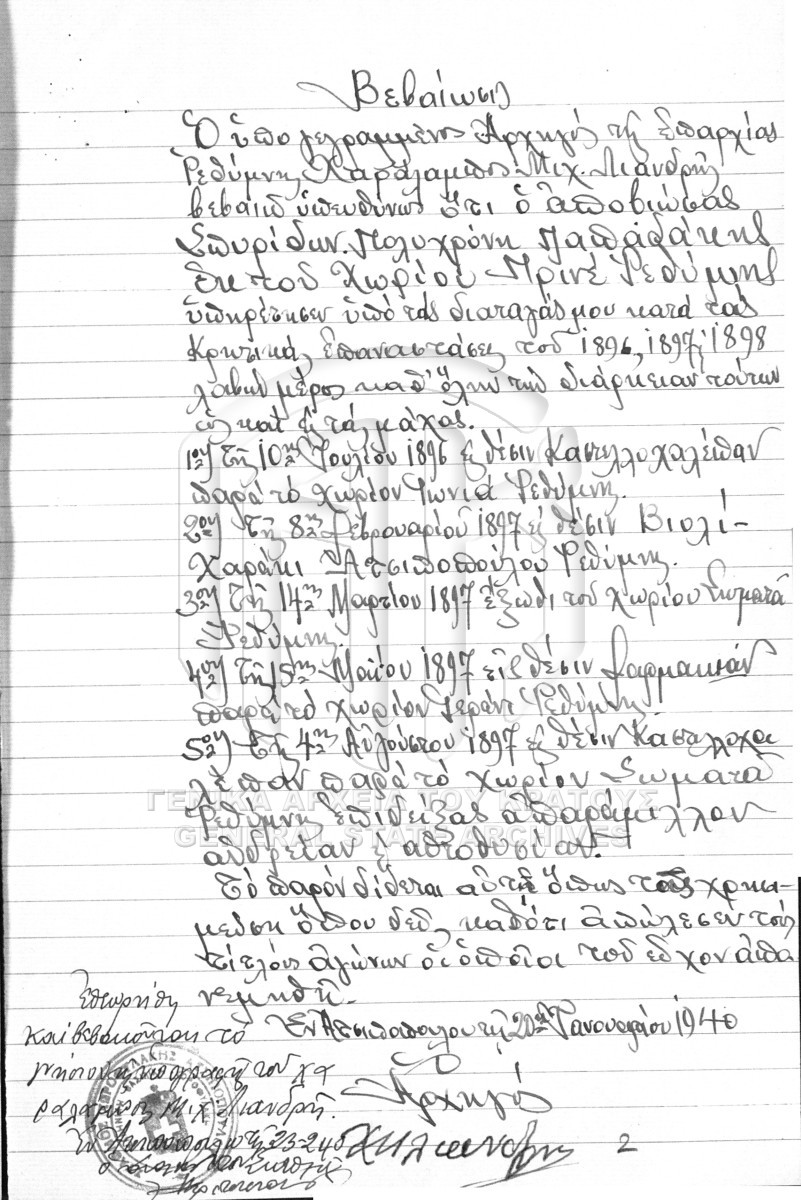 Βεβαίωσις
Ὁ ὑπογεγραμμένος Ἀρχηγός τῆς Ἐπαρχίας
Ρεθύμνης Χαράλαμπος Μιχ. Λιανδρῆς
βεβαιῶ ὑπευθύνως ὅτι ὁ ἀποβιώσας
Σπυρίδων Πολυχρόνη Παπαδάκης
ἐκ τοῦ Χωρίου Πρινέ Ρεθύμνης
ὑπηρέτησεν ὑπό τάς διαταγάς μου κατά τάς
Κρητικάς Ἐπαναστάσεις τοῦ 1896, 1897, 1898
λαβών μέρος καθ' ὅλην τήν διάρκειαν τούτων
ὡς καί εἰς τάς μάχας.
1ον) τῆς 10ης Ἰουλίου 1896 εἰς θέσιν Καστελλοχαλέπαν
παρά τό χωρίον Γωνιά Ρεθύμνης.
2ον) τῆς 8ης Φεβρουαρίου 1897 εἰς θέσιν Βιολί-
Χαράκι Ἀτσιποπούλου Ρεθύμνης.
3ον) τῆς 14ης Μαρτίου 1897 ἔξωθι τοῦ χωρίου Σωματᾶ
Ρεθύμνης.
4ον) τῆς 15ης Μαΐου 1897 εἰς θέσιν
παρά τό χωρίον Γεράνι Ρεθύμνης
5ον) τῆς 4ης Αὐγούστου 1897 εἰς θέσιν Καστελλοχα
λέπαν παρά τό χωρίον Σωματᾶ
Ρεθύμνης ἐπιδείξας ἀπαράμιλλον
ἀνδρείαν & αὐτοθυσίαν.
Τό παρόν δίδεται αὐτῇ ὅπως τῆς χρησι-
μεύσῃ ὅπου δεῖ, καθότι ἀπώλεσεν τούς
τίτλους ἀγώνων οἱ ὁποῖοι τοῦ εἶχον ἀπο
νεμηθῆ.
Ἐν Ἀτσιποπούλου τῇ 20ῃ Ἰανουαρίου 1940
Ὁ
Ἀρχηγός
ΧΜΛιανδρης 2
Ἐθεωρήθη
καί βεβαιοῦται τό
γνήσιον τῆς ὑπογραφῆς τοῦ Χα
ραλάμπους Μιχ. Λιανδρῆ.
Ἐν Ἀτσιποπούλῳ τῇ 23-2-40
ΓΕΝΙΚΑ ΑΡΧΕΙΑ ΤΟΥ ΚΡΑΤΟΥΣ
GENERAL STATE ARCHIVES